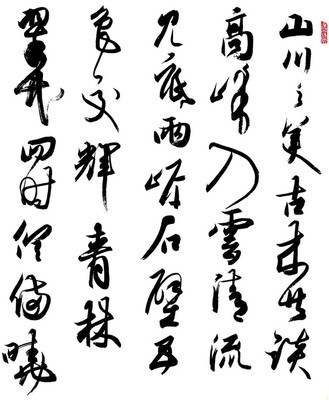 山川之美古來共談
高峰入雲清流
見底兩岸石壁五
色交輝青林
翠竹四時俱備曉